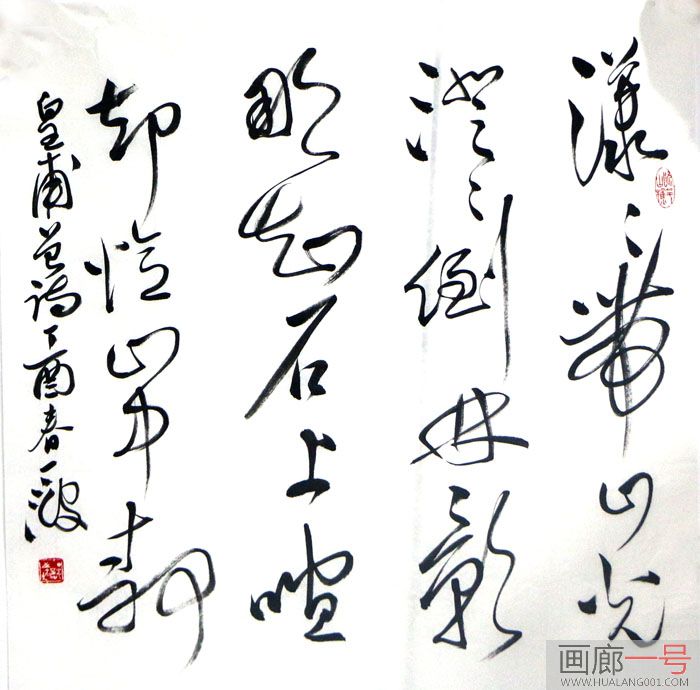 漾〻帶山光
澄〻倒林影
那知石上喧
却憶山中静
皇甫曾詩丁酉春一
画廊一号
WWW.HUALANG001.COM